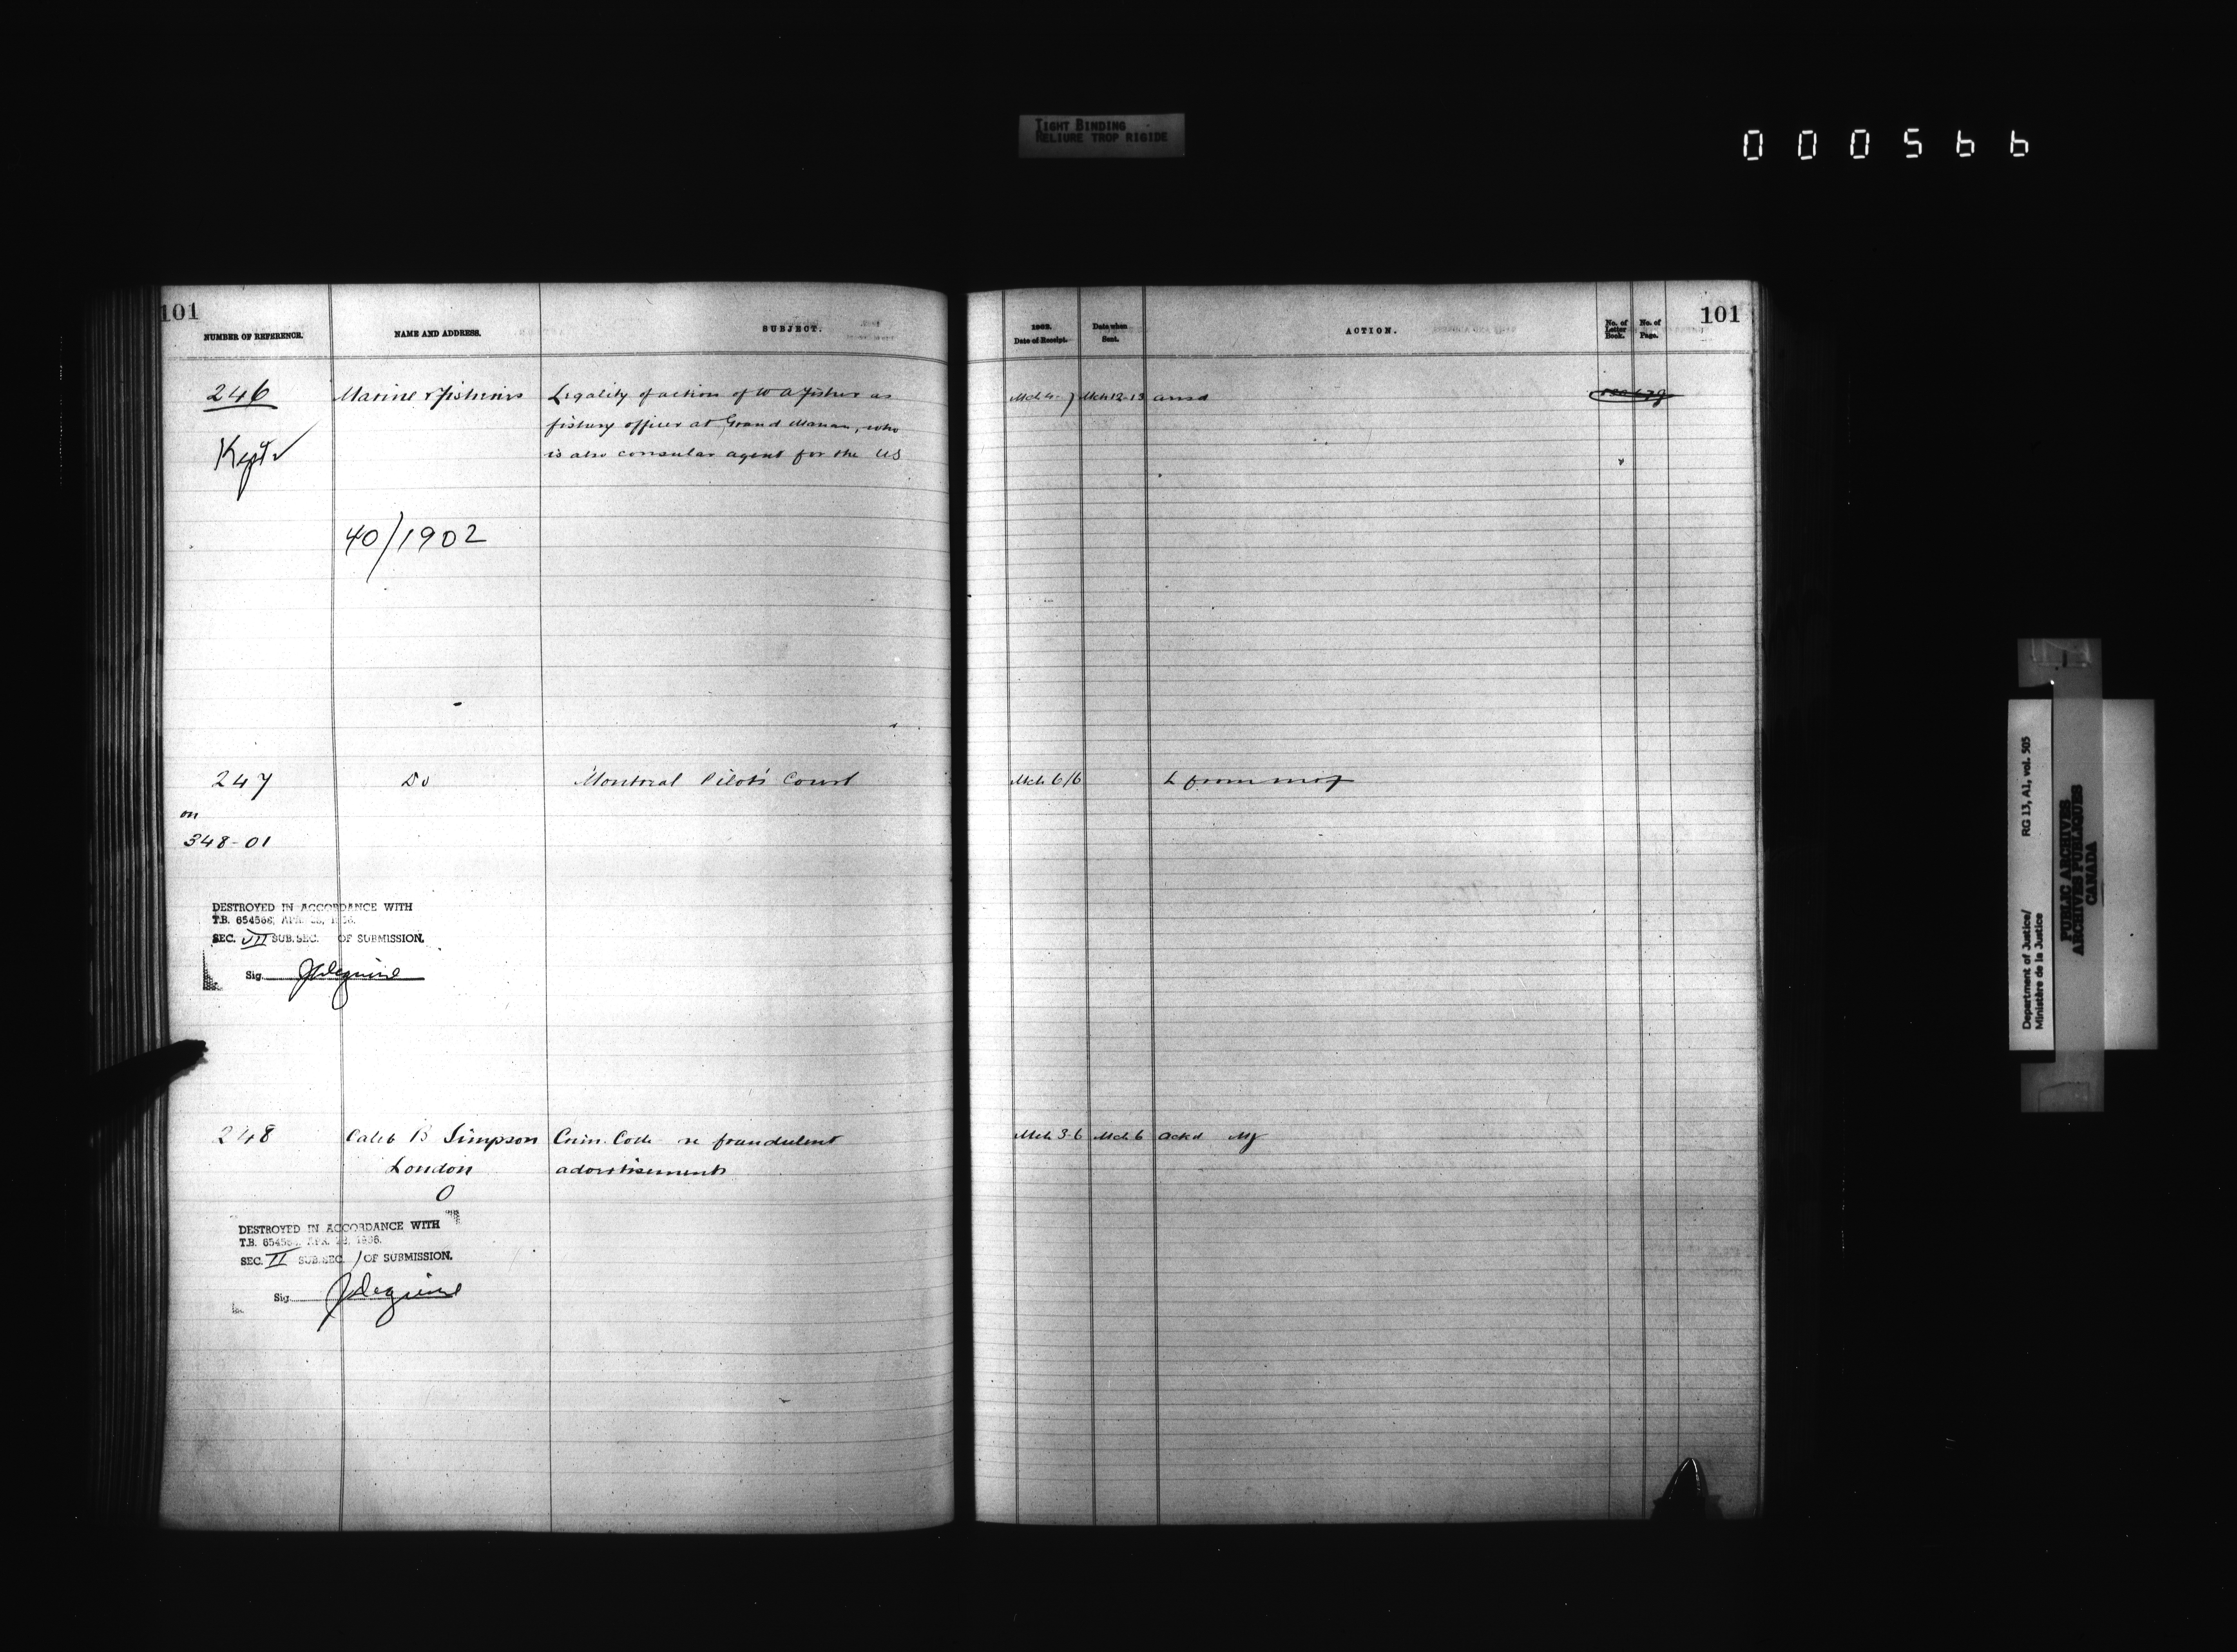 TIGHT BINDING
RELIURE TROP RIGIDE
000566
101
NUMBER OF REFERENCE.
NAME AND ADDRESS.
SUBJECT.
1902.
Date of Receipt.
Date when
Sent.
ACTION.
No. of
Letter
Book.
No. of
Page.
101
246
Marine & Fisheries
Legality of action of W A Fisher as
fishery officer at Grand Manan, who
is also consular agent for the US
Mch 4-7
Mch 12-13
ansd
Kept
40/1902
247
Do
Montreal Pilots Court
Mch 6/6
L from
on
348-01
DESTROYED IN ACCORDANCE WITH
T.B. 654568, APR.
SEC. VII SUB.SEC. OF SUBMISSION.
Sig.
248
Caleb B Simpson
Crim. Code re fraudulent
Mch 3-6
Mch 6
ackd
London
advertisements
O
DESTROYED IN ACCORDANCE WITH
T.B. 65456
SEC. II SUB.SEC. 1 OF SUBMISSION.
Sig.
Department of Justice/
Ministère de la Justice
RG 13, A1, vol. 505
PUBLIC ARCHIVES
ARCHIVES PUBLIQUES
CANADA